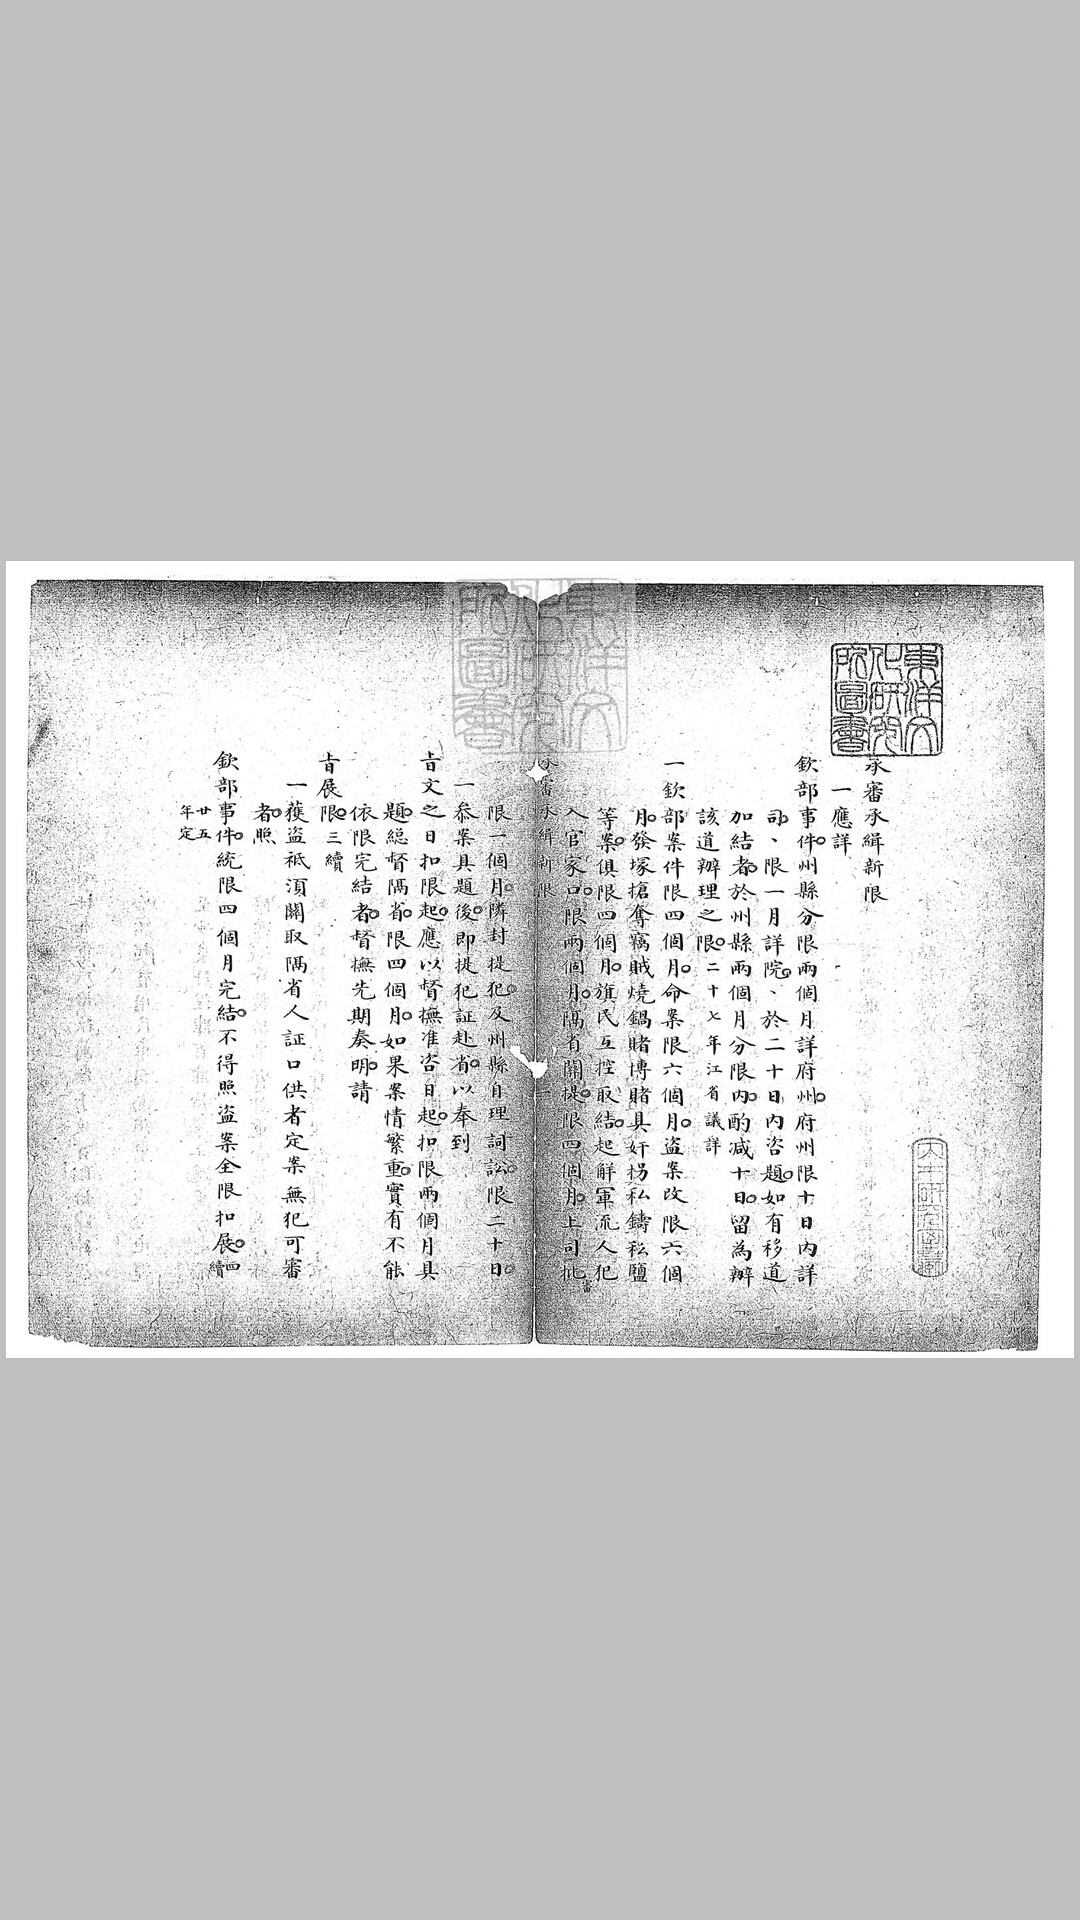 東洋文
化研究
所圖書
承審承緝新限
一應詳
欽部事件。州縣分限兩個月詳府州。府州限十日內詳
司、限一月詳院。、於二十日內咨題。如有移道
加結者。於州縣兩個月分限內。酌減十日。留為辦
該道辦理之限。二十七年江省議詳
一欽部案件限四個月。命案限六個月。盜案改限六個
月。發塚搶奪竊賊燒鍋賭博賭具奸拐私鑄私鹽
等案。俱限四個月。旗民互控取結。起解軍流人犯
入官家口。限兩個月。隔省關提。限四個月。上司批審
承審承緝新限
一
限一個月。隣封提犯。及州縣自理詞訟。限二十日。
一叅案具題後。即提犯証赴省。以奉到
旨文之日扣限起。應以督撫准咨日起。扣限兩個月具
題。總督隔省。限四個月。如果案情繁重。實有不能
依限完結者。督撫先期奏明。請
旨展限。三續
一獲盜祗須關取隔省人証口供者定案無犯可審
者。照
欽部事件。統限四個月完結。不得照盜案全限扣展。四續
廿五
年定